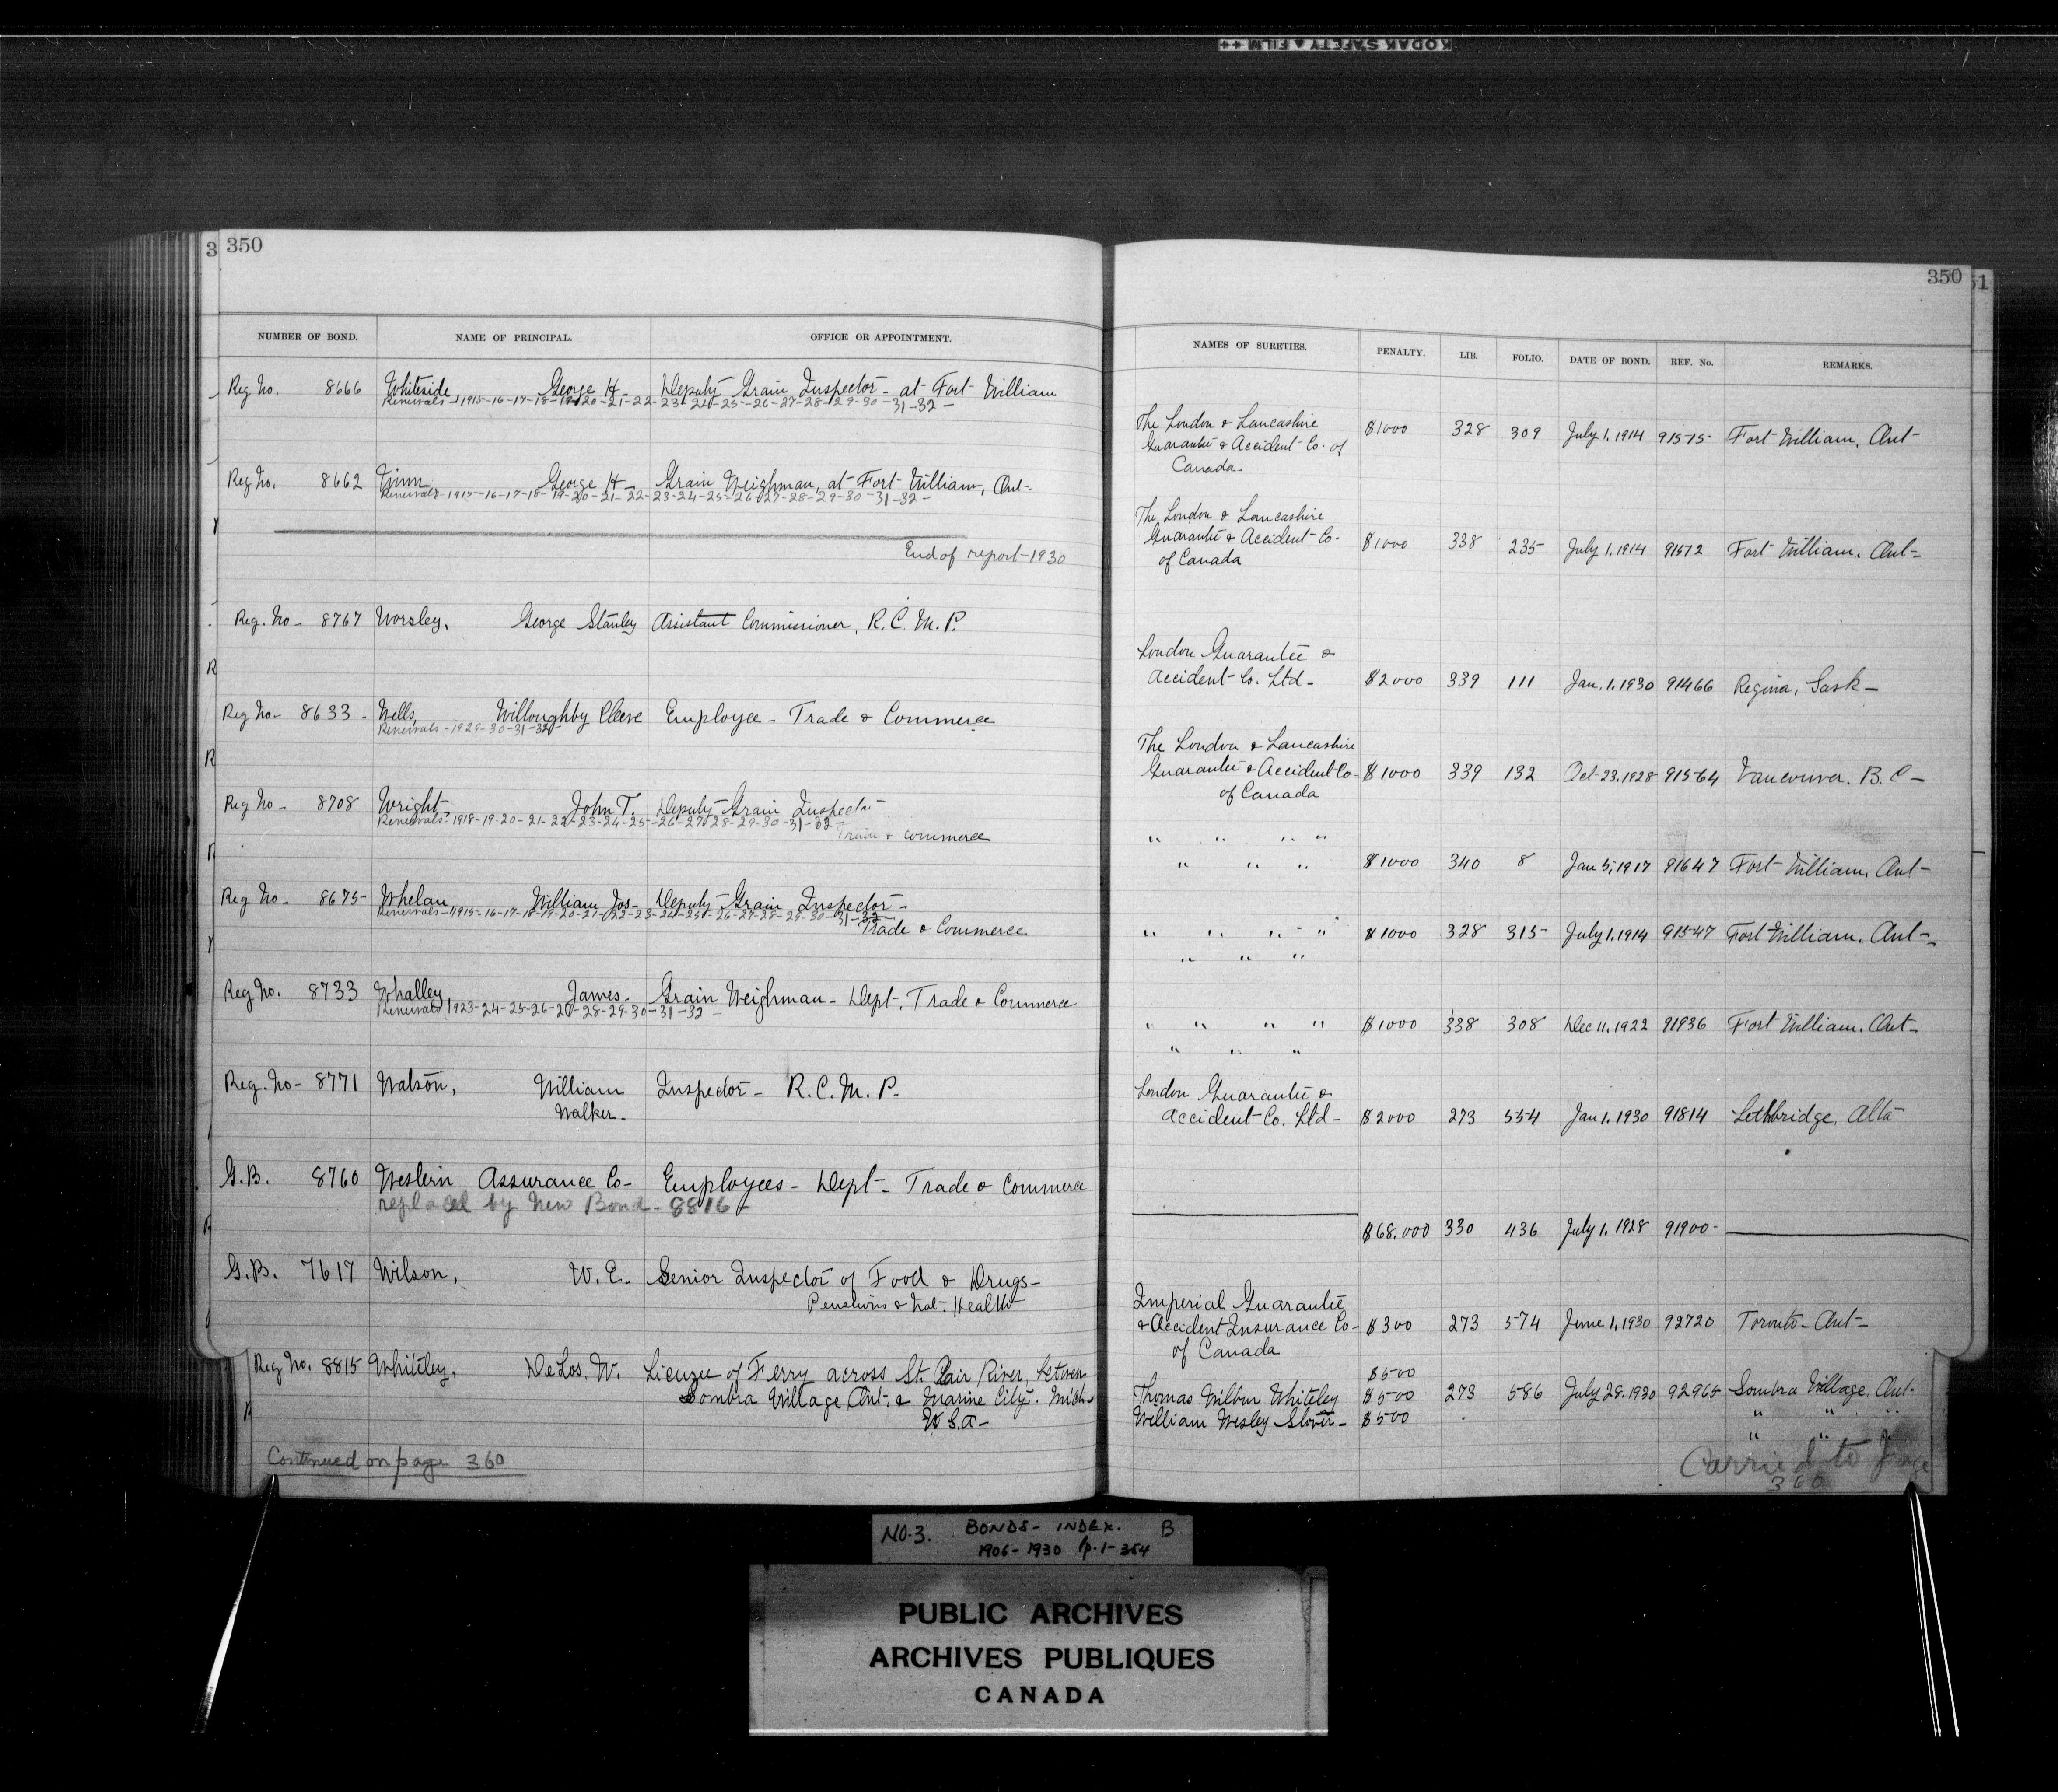 KODAK SAFETY FILM ++
3 350
350 51
NUMBER OF BOND. NAME OF PRINCIPAL. OFFICE OR APPOINTMENT.
Reg No. 8666 Whiteside George H— Deputy Grain Inspector— at Fort William
Renewals—1915-16-17-18-19-20-21-22-23-24-25-26-27-28-29-30-31-32—
Reg No. 8662 Winn George H— Grain Weighman, at Fort William, Ont—
Renewals—1915-16-17-18-19-20-21-22-23-24-25-26-27-28-29-30-31-32—
End of report—1930
Reg. No— 8767 Worsley, George Stanley Assistant Commissioner, R.C.M.P.
Reg No— 8633— Wells, Willoughby Cleeve Employee— Trade & Commerce
Renewals—1929-30-31-32—
Reg No— 8708 Wright John T. Deputy Grain Inspector
Renewals—1918-19-20-21-22-23-24-25-26-27-28-29-30-31-32
& Commerce
Reg No— 8675 Whelan, William Jos— Deputy Grain Inspector—
Renewals—1915-16-17-18-19-20-21-22-23-24-25-26-27-28-29-30-31-32
Trade & Commerce
Reg No. 8733 Whalley, James— Grain Weighman— Dept. Trade & Commerce
Renewals 1923-24-25-26-27-28-29-30-31-32—
Reg. No— 8771 Watson, William Inspector— R.C.M.P.
Walker—
G.B. 8760 Western Assurance Co— Employees— Dept— Trade & Commerce
replaced by New Bond— 8816—
G.B. 7617 Wilson, W. E. Senior Inspector of Food & Drugs—
Pensions & Nat. Health
Reg No. 8815 Whiteley, DeLos. W. License of Ferry across St. Clair River, between
Sombra Village, Ont. & Marine City. Mich—
U.S.A—
Continued on page 360
NAMES OF SURETIES. PENALTY. LIB. FOLIO. DATE OF BOND. REF. No. REMARKS.
The London & Lancashire
Guarantee & Accident Co. of $1000 328 309 July 1. 1914 91515 Fort William, Ont—
Canada—
The London & Lancashire
Guarantee & Accident Co— $1000 338 235 July 1. 1914 91572 Fort William, Ont—
of Canada
London Guarantee &
Accident Co. Ltd— $2000 339 111 Jan. 1. 1930 91466 Regina, Sask—
The London & Lancashire
Guarantee & Accident Co— $1000 339 132 Oct. 23. 1928 91564 Vancouver. B.C—
of Canada
" " " "
" " " $1000 340 8 Jan 5, 1917 91647 Fort William, Ont—
" " " " $1000 328 315 July 1. 1914 91547 Fort William, Ont—
" " "
" " " " $1000 338 308 Dec 11. 1922 91936 Fort William, Ont—
" " "
London Guarantee &
Accident Co. Ltd— $2000 273 554 Jan 1. 1930 91814 Lethbridge, Alta
$68.000 330 436 July 1. 1928 91900—
Imperial Guarantee
& Accident Insurance Co— $300 273 574 June 1, 1930 92720 Toronto— Ont—
of Canada
$500
Thomas Wilbur Whiteley $500 273 586 July 28. 1930 92965 Sombra Village, Ont.
William Wesley Stover— $500 " " "
" " "
Carried to Page
360
NO. 3. BONDS— INDEX. B
1906-1930 p. 1-354
PUBLIC ARCHIVES
ARCHIVES PUBLIQUES
CANADA